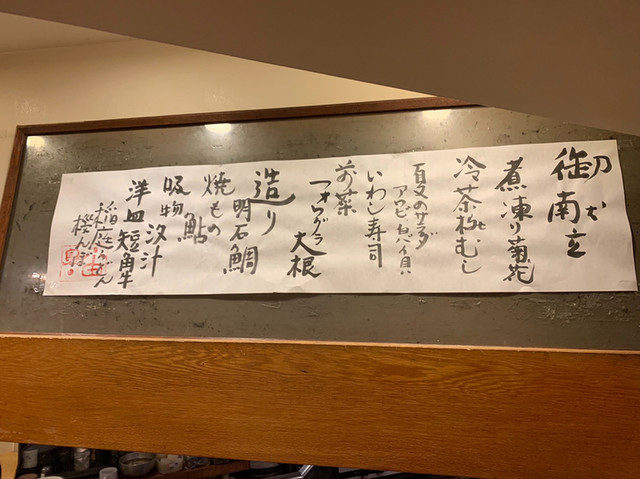 御献立
煮凍り菊花
冷茶碗むし
夏のサラダ
アワビ白バイ貝
いわし寿司
前菜
フォワグラ
大根
造り
明石鯛
焼もの
鮎
吸物
沢汁
洋皿短角牛
稲庭うどん